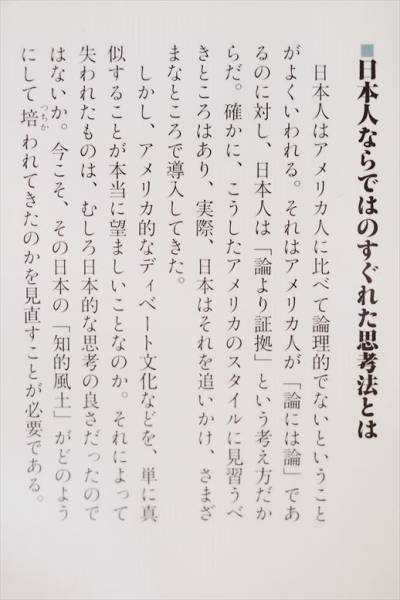 ■日本人ならではのすぐれた思考法とは
日本人はアメリカ人に比べて論理的でないということ
がよくいわれる。それはアメリカ人が「論には論」であ
るのに対し、日本人は「論より証拠」という考え方だか
らだ。確かに、こうしたアメリカのスタイルに見習うべ
きところはあり、実際、日本はそれを追いかけ、さまざ
まなところで導入してきた。
しかし、アメリカ的なディベート文化などを、単に真
似することが本当に望ましいことなのか。それによって
失われたものは、むしろ日本的な思考の良さだったので
はないか。今こそ、その日本の「知的風土」がどのよう
にして培つちかわれてきたのかを見直すことが必要である。